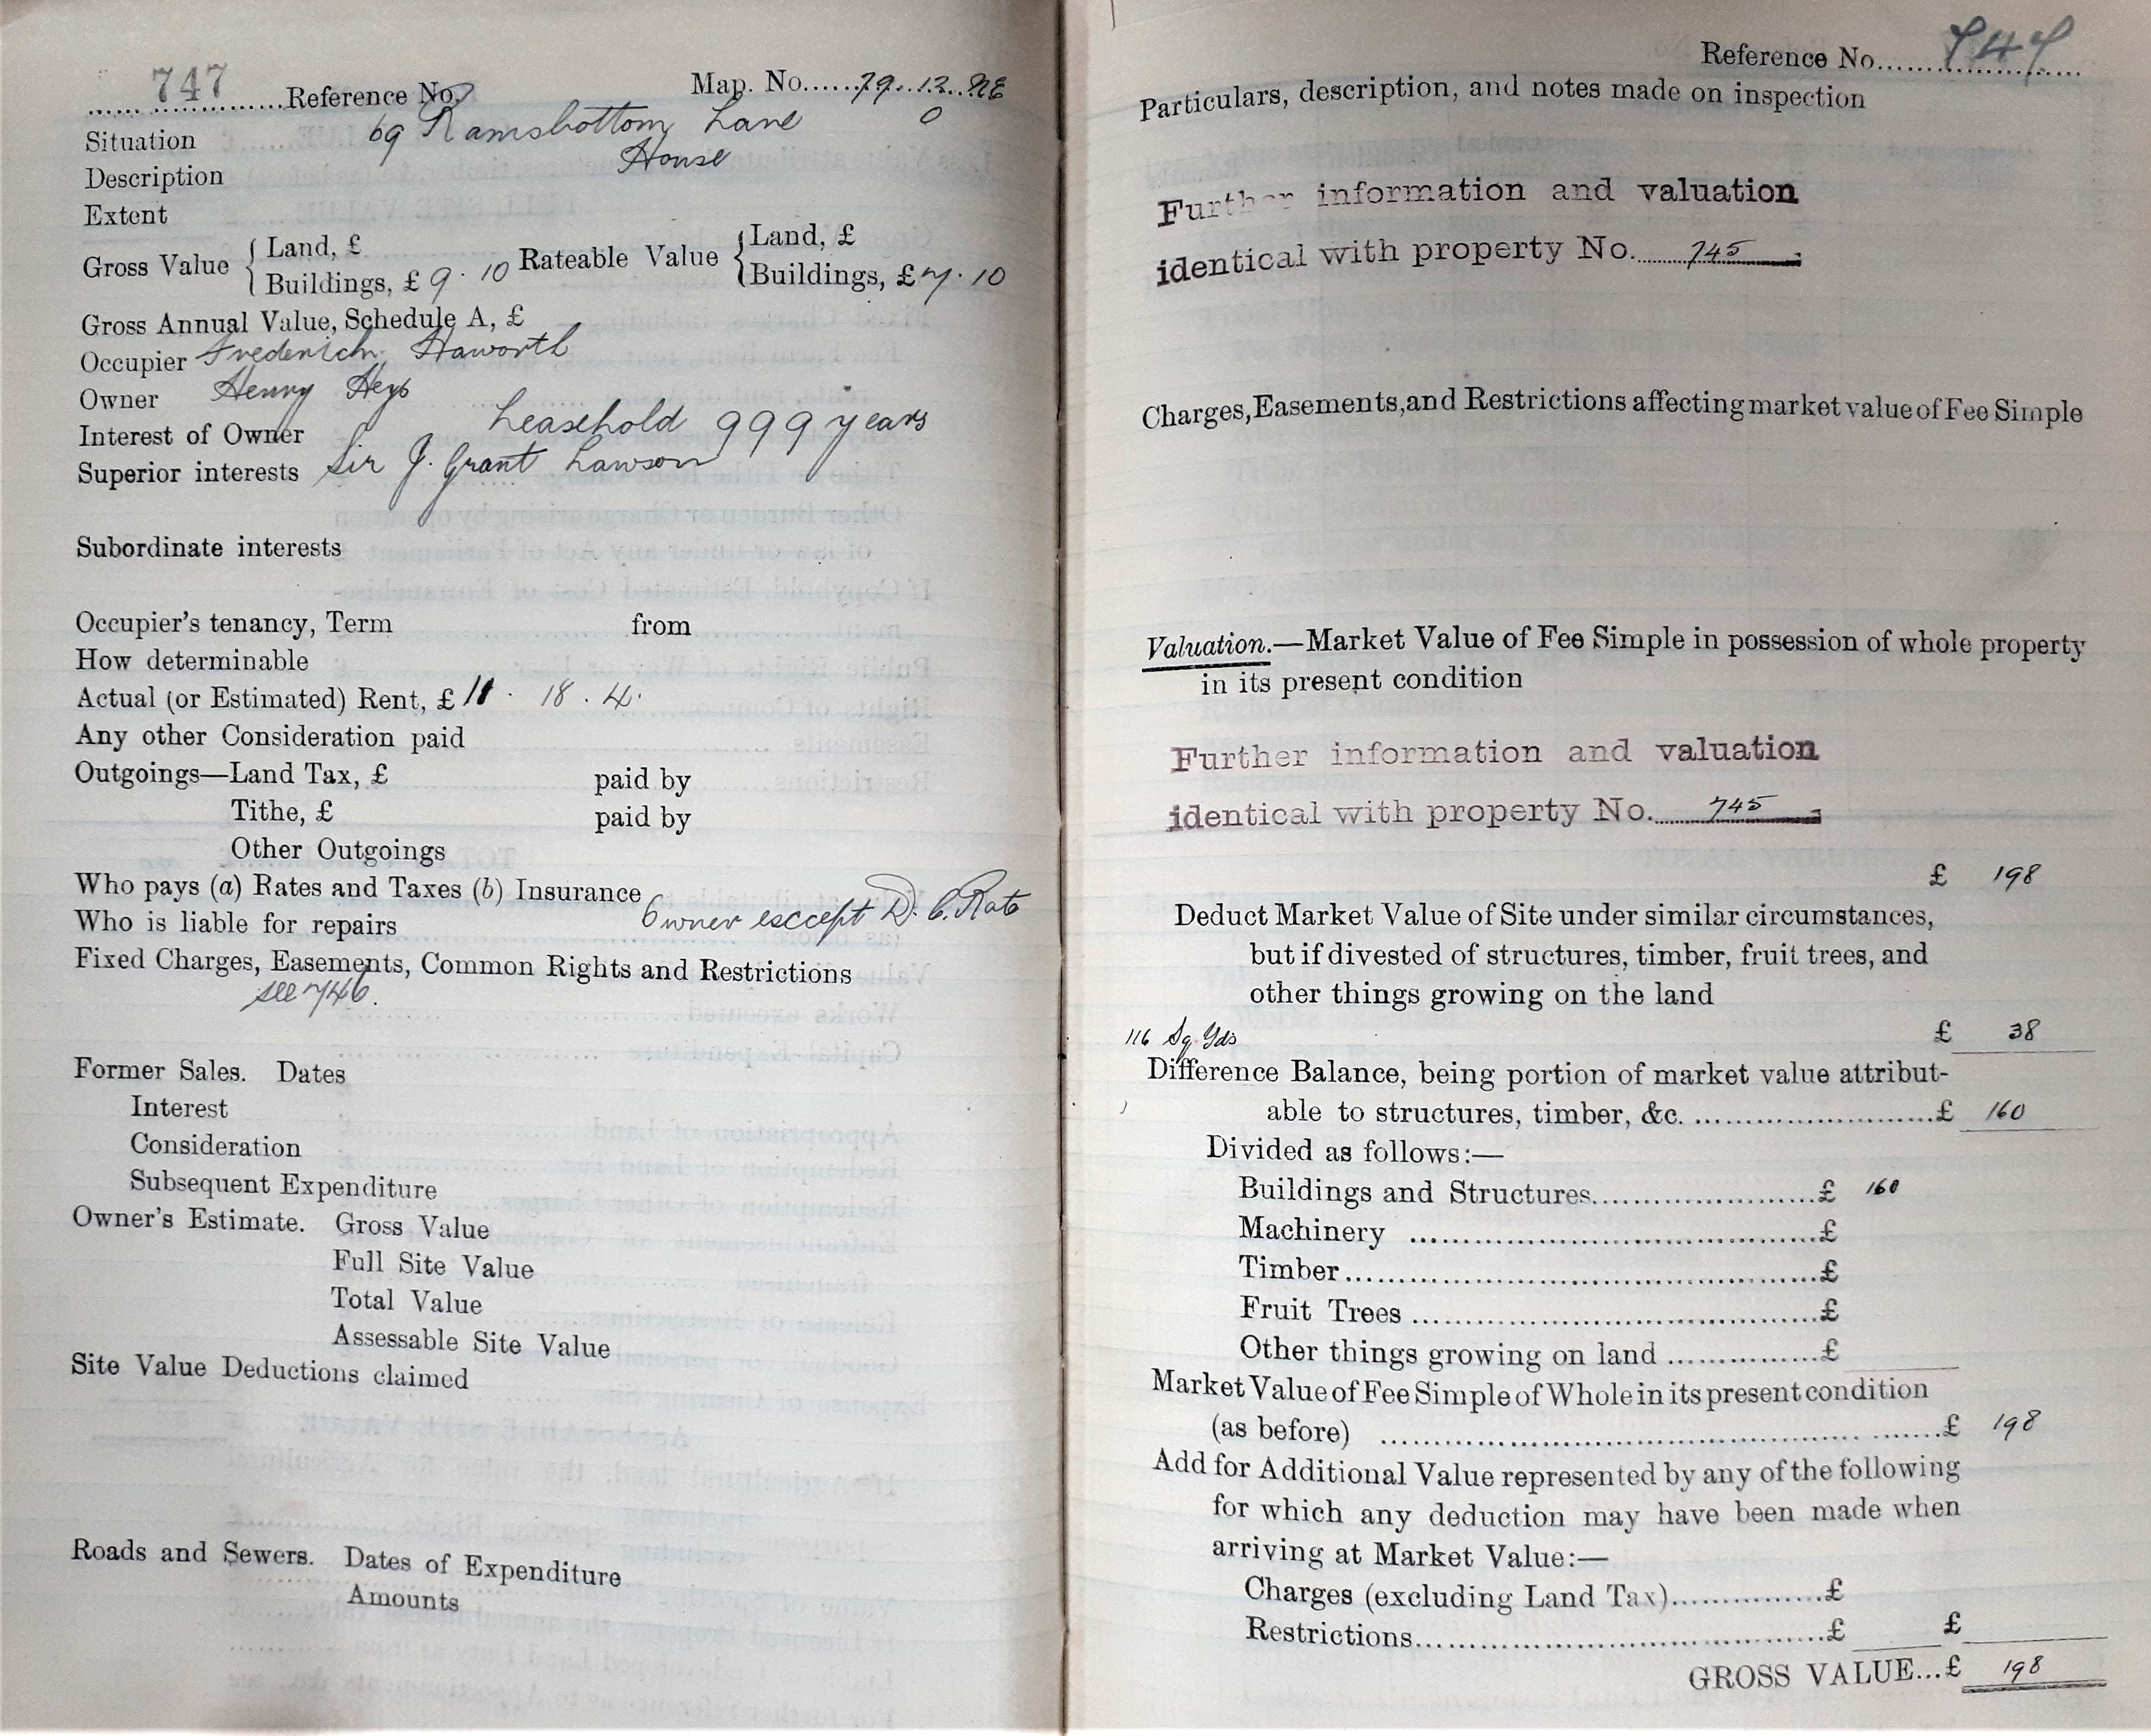 747 Reference No. Map. No. 79.13.NE
0
Situation 69 Ramsbottom Lane
Description House
Extent
Gross Value { Land, £ Rateable Value { Land, £
Buildings, £ 9 . 10 Buildings, £ 7 . 10
Gross Annual Value, Schedule A, £
Occupier Frederick Haworth
Owner Henry Heys
Interest of Owner Leasehold 999 years
Superior interests Sir J. Grant Lawson
Subordinate interests
Occupier's tenancy, Term from
How determinable
Actual (or Estimated) Rent, £ 11 . 18 . 4.
Any other Consideration paid
Outgoings—Land Tax, £ paid by
Tithe, £ paid by
Other Outgoings
Who pays (a) Rates and Taxes (b) Insurance
Who is liable for repairs Owner except D. C. Rate
Fixed Charges, Easements, Common Rights and Restrictions
see 746.
Former Sales. Dates
Interest
Consideration
Subsequent Expenditure
Owner's Estimate. Gross Value
Full Site Value
Total Value
Assessable Site Value
Site Value Deductions claimed
Roads and Sewers. Dates of Expenditure
Amounts
Reference No. 747
Particulars, description, and notes made on inspection
Further information and valuation
identical with property No. 745
Charges, Easements, and Restrictions affecting market value of Fee Simple
Valuation.—Market Value of Fee Simple in possession of whole property
in its present condition
Further information and valuation
identical with property No. 745
£ 198
Deduct Market Value of Site under similar circumstances,
but if divested of structures, timber, fruit trees, and
other things growing on the land
116 Sq. Yds £ 38
Difference Balance, being portion of market value attribut-
able to structures, timber, &c. £ 160
Divided as follows:—
Buildings and Structures £ 160
Machinery £
Timber £
Fruit Trees £
Other things growing on land £
Market Value of Fee Simple of Whole in its present condition
(as before) £ 198
Add for Additional Value represented by any of the following
for which any deduction may have been made when
arriving at Market Value:—
Charges (excluding Land Tax) £
Restrictions £ £
GROSS VALUE...£ 198